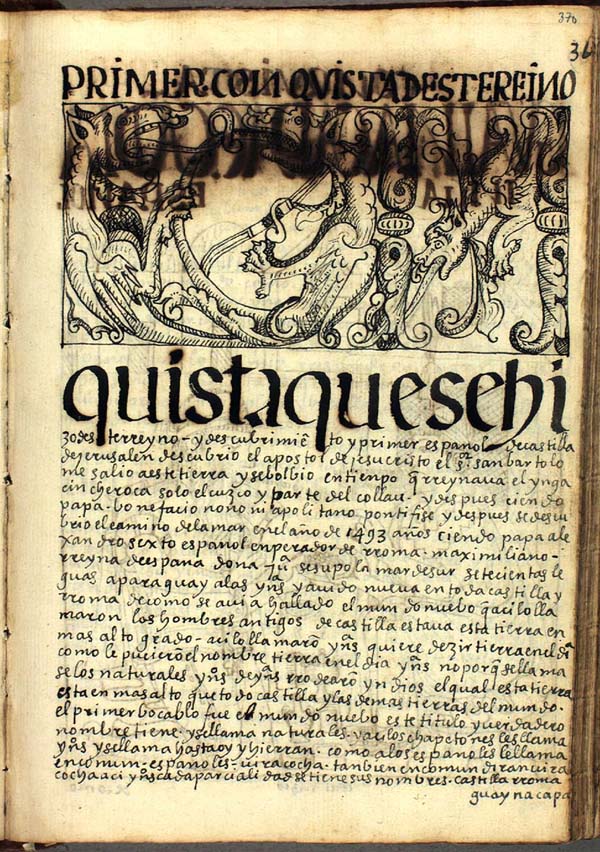 370
36
PRIMER.CONQVISTADESTEREINO
CON
quistaquesehi
zodesterreyno-ydescubrimiẽto yprimer español decastilla
dejerusalen descubrio el apostol dejesucristo el sr sanbartolo
me salio aestetierra ysebolbio entienpo q̃ rreynaua el ynga
cincheroca solo elcuzco y parte del collau- ydespues ciendo
papa. bonefacio nono napolitano pontifise ydespues sedescu
brio elcamino delamar enelaño de 1493 años ciendo papa ale
xandro sexto español enperador de rroma. maximiliano-
rreyna deespana dona jua sesupo la mardesur setecientas le
guas aparaguay alas yns yauido nueua ento da castilla y
rroma decomo se auia hallado el mundo nuebo q̃acilolla
maron los hombres antigos decastilla estaua esta tierra en
mas alto grado-acilollamarõ yns quiere dezir tierra eneldia
como le pucierõ elnombre tierra enel dia yns noporq̃ sellama
selos naturales yns deyns rrodearõn yndios elqual esta tierra
esta enmas alto que todo castilla ylas demas tierras del mundo.
el primer bocablo fue el mundo nuebo este titulo yuerdadero
nombre tiene. ysellama naturales. yaulos chapetones les llama
yns ysellama hasta oy yhierran. como alos españoles le llama
encomun. españoles-uiracocha. tanbien encomun diran uira
cochaaci yns cada parcialidad se tiene sus nombres. castilla rroma
guaynacapa